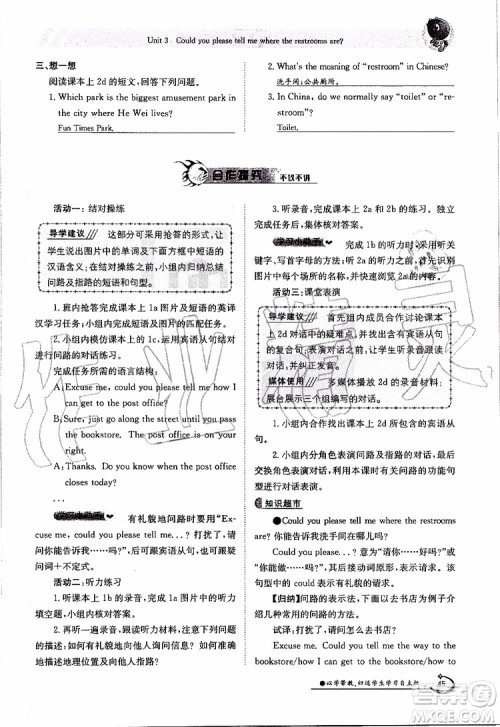 Unit 3 Could you please tell me where the restrooms are?
三、想一想
阅读课本上 2d 的短文，回答下列问题。
1. Which park is the biggest amusement park in
the city where He Wei lives?
Fun Times Park.
2. What is the meaning of "restroom" in Chinese?
洗手间;公共厕所。
3. In China, do we normally say "toilet" or "re-
stroom"?
Toilet.
合作探究 不议不讲
活动一：结对操练
导学建议 这部分可采用抢答的形式，让
学生说出图片中的单词及下面方框中短语的
汉语含义；在此基础上，小组内归纳总结
问路及指路的短语和句型。
1. 班内抢答完成课本上 1a 图片及短语的英
汉学习任务；小组内完成图片的匹配任务。
2. 小组内两人仿照课本上的 1c，运用宾语从
句进行问路的对话练习。
完成任务所需的语言结构：
A: Excuse me, could you please tell me how I
can get to the post office?
B: Sure, just go along the street until you pass
the bookstore. The post office is on your
right. You'll see it beside the bookstore.
A: Thanks. Do you know when the post office
closes today?
…
学习小助手 有礼貌地问路时要用"Ex-
cuse me, could you please tell me...? 打扰了，请
问你能告诉我……吗?"，且后面的宾语从句用疑
问词+陈述句的形式。
活动二：听力练习
1. 听课本上 1b 的录音，完成课本上的听力
填空题，小组内核对答案。
2. 再听一遍录音，跟读听力材料，并试着总
结如何有礼貌地向他人询问信息，以及怎样向
他人指路和提供信息。
3. 听录音，完成课本上 2a 和 2b 的练习。小
组内核对答案。
学习小助手 完成 1b 的听力时，应学会
听关键词，写其首字母；听之前，首先识别
图片中的场所，并快速浏览 2a 的内容。
活动三：课堂表演
导学建议 首先组内成员合作讨论课本
上 2d 对话中的疑难点，并找出含有宾语从句
的复合句；表演对话，让学生能学以致用。
媒体使用 多媒体播放 2d 的录音材料；
展台展示三个组编写的对话。
1. 小组内合作找出 2d 对话中包含的宾语从
句。
2. 小组内分角色表演对话，完成 2d 的任务；
分角色表演对话，并利用本课时有关问路的句型
进行对话表演。
知识超市
●Could you please tell me where the restrooms
are? 你能告诉我洗手间在哪儿吗?
Could you please tell me...? 意为"请问，你
能……吗?"，其后接动词原形；后面加宾语从句。该
句型作为交际用语，表示有礼貌的请求。
【归纳】问路的方式有很多，现以去书店为例子介
绍几种常用的表达方式。
试译：打扰了，请问去书店怎么走?
Excuse me, could you tell me the way to the
bookstore/how I can get to the bookstore/how to
●以学带教，归还学生学习自主权
45